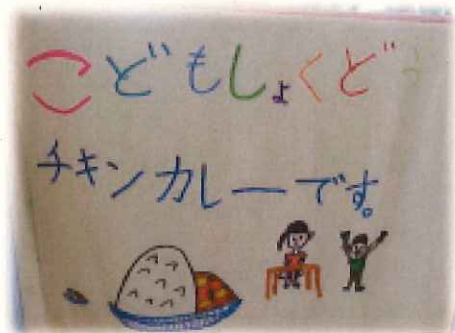 こどもしょくど
チキンカレーです。